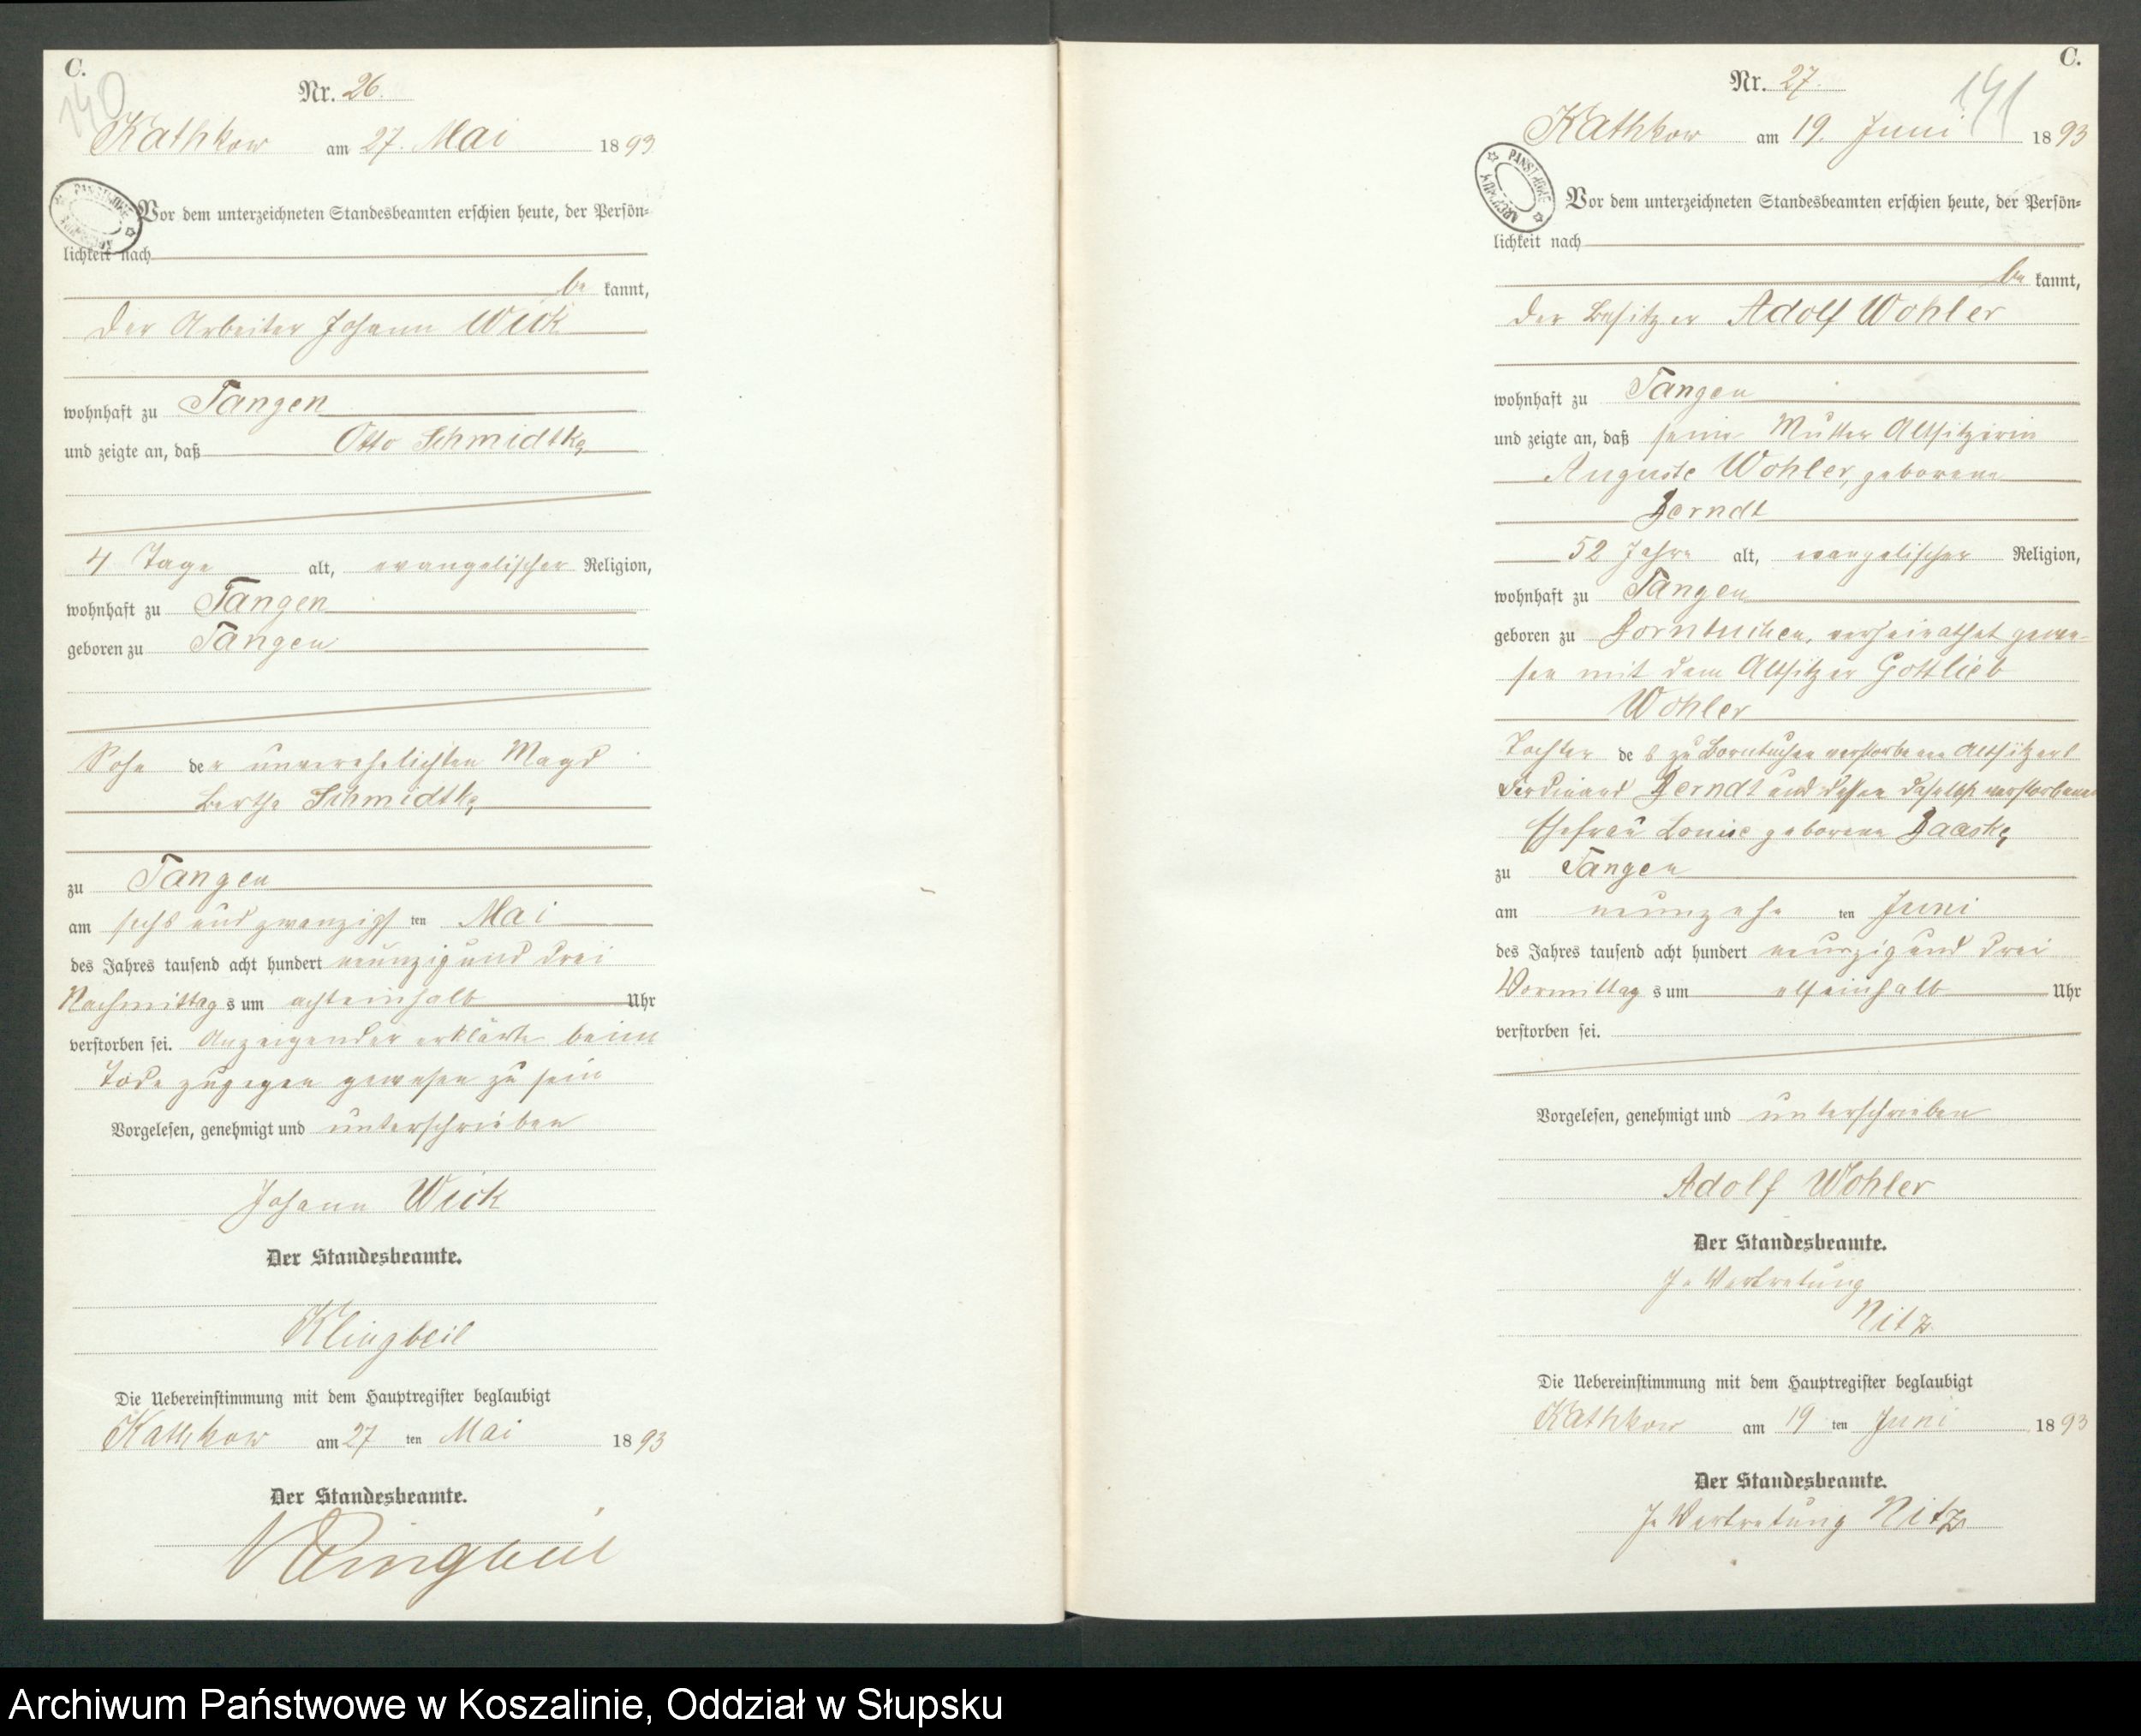 C.
140
Nr. 26.
Kathkow am 27. Mai 1893
Vor dem unterzeichneten Standesbeamten erschien heute, der Persön=
lichkeit nach
be kannt,
der Arbeiter Johann Wick
wohnhaft zu Tangen
und zeigte an, daß Otto Schmidtke
4 Tage alt, evangelischer Religion,
wohnhaft zu Tangen
geboren zu Tangen
Sohn der unverehelichten Magd
Bertha Schmidtke
zu Tangen
am sechs und zwanzigsten Mai
des Jahres tausend acht hundert neunzig und drei
Nachmittags um achteinhalb Uhr
verstorben sei. Anzeigender erklärte beim
Tode zugegen gewesen zu sein
Vorgelesen, genehmigt und unterschrieben
Johann Wick
Der Standesbeamte.
Klingbeil
Die Uebereinstimmung mit dem Hauptregister beglaubigt
Kathkow am 27 ten Mai 1893
Der Standesbeamte.
Klingbeil
C.
141
Nr. 27.
Kathkow am 19. Juni 1893
PANSTWOWE ARCHIWUM
Vor dem unterzeichneten Standesbeamten erschien heute, der Persön=
lichkeit nach
be kannt,
der Besitzer Adolf Wohler
wohnhaft zu Tangen
und zeigte an, daß seine Mutter Altsitzerin
Auguste Wohler, geborene
Berndt
52 Jahre alt, evangelischer Religion,
wohnhaft zu Tangen
geboren zu Borntuchen, verheirathet gewe-
sen mit dem Altsitzer Gottlieb
Wohler
Tochter des zu Borntuchen verstorbenen Altsitzers
Ferdinand Berndt und dessen daselbst verstorbenen
Ehefrau Louise geborene Baaske
zu Tangen
am neunzehnten Juni
des Jahres tausend acht hundert neunzig und drei
Vormittags um elfeinhalb Uhr
verstorben sei.
Vorgelesen, genehmigt und unterschrieben
Adolf Wohler
Der Standesbeamte.
In Vertretung
Nitz
Die Uebereinstimmung mit dem Hauptregister beglaubigt
Kathkow am 19 ten Juni 1893
Der Standesbeamte.
In Vertretung Nitz
Archiwum Państwowe w Koszalinie, Oddział w Słupsku